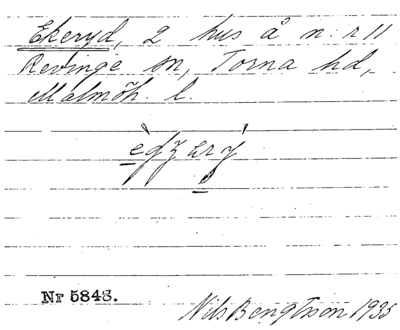 Ekeryd, 2 hus å n:r 11
Revinge sn, Torna hd,
Malmöh. l.
Nr 5848.
Nils Bengtsson 1935